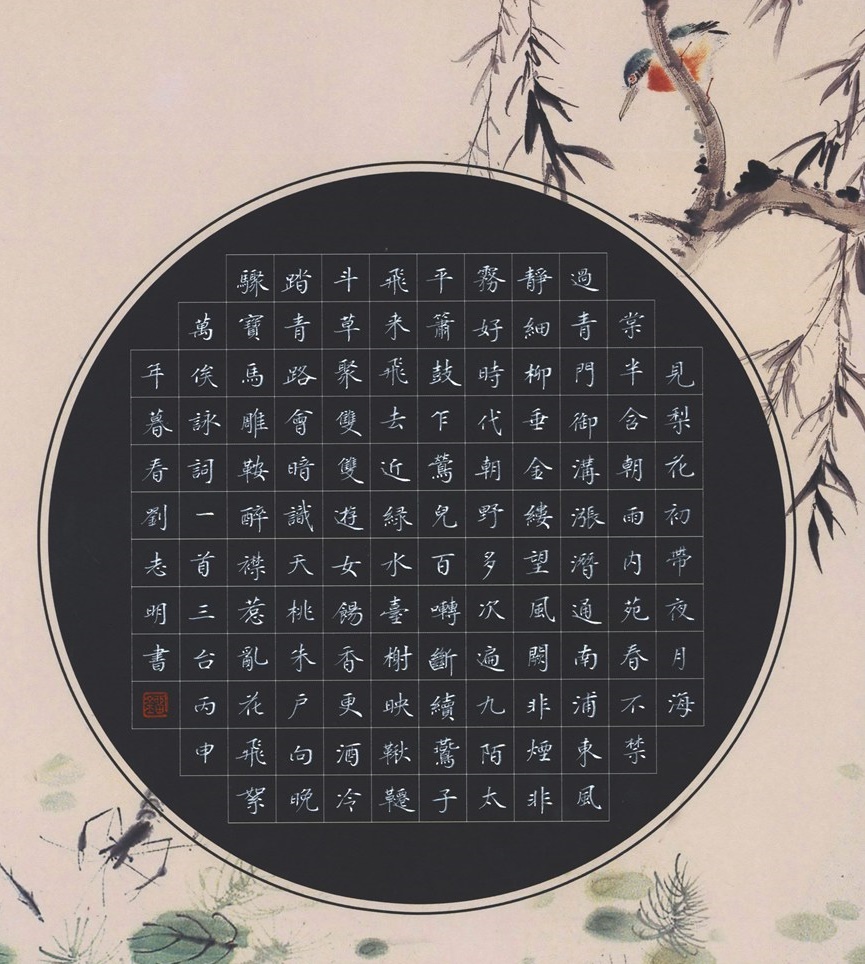 見梨花初帶夜月海
棠半含朝雨内苑春不禁
過青門御溝漲潛通南浦東風
靜細柳垂金縷望風闕非煙非
霧好時代朝野多次遍九陌太
平簫鼓乍鶯兒百囀斷續鷰子
飛来飛去近緑水臺榭映鞦韆
斗草聚雙雙遊女餳香更酒冷
踏青路會暗識夭桃朱户向晩
驟寶馬雕鞍醉襟惹亂花飛絮
萬俟詠詞一首三台丙申
年暮春劉志明書